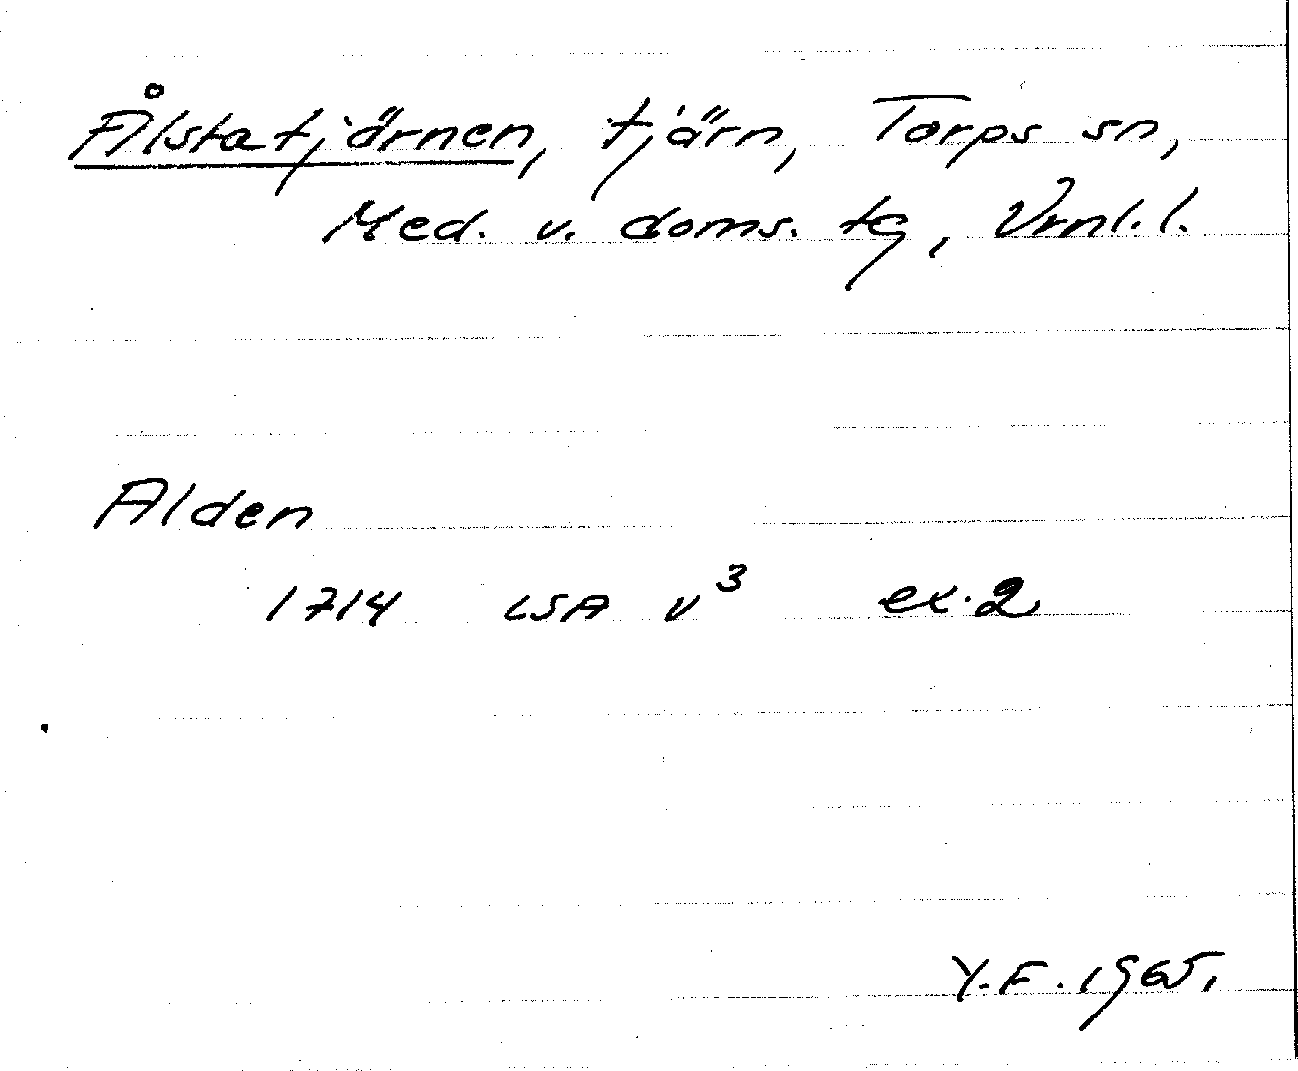 Ålstatjärnen, tjärn, Torps sn,
Med. v. doms. tg, Vrnl. l.
Alden
1714 LSA v³ ex. 2
Y. F. 1965.